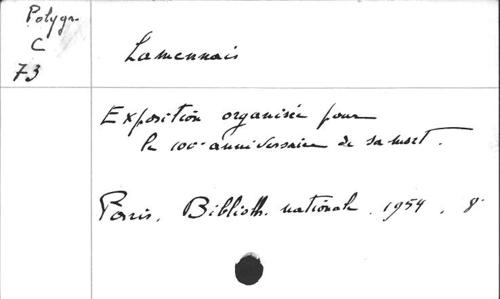 Polygr.
C
73
Lamennais
Exposition organisée pour
le 100e anniversaire de sa mort.
Paris, Biblioth. nationale, 1954, 8°